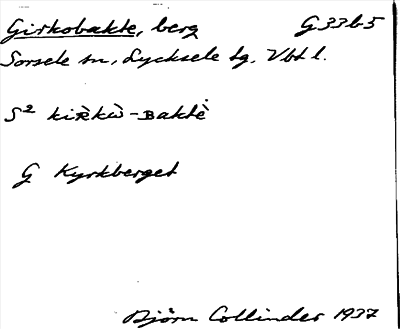 Girkobakte, berg G33b5
Sorsele sn, Lycksele lg, Vbtl.
S² kiʀ̀kɷ̀-ʙaktè
G Kyrkberget
Björn Collinder 1937